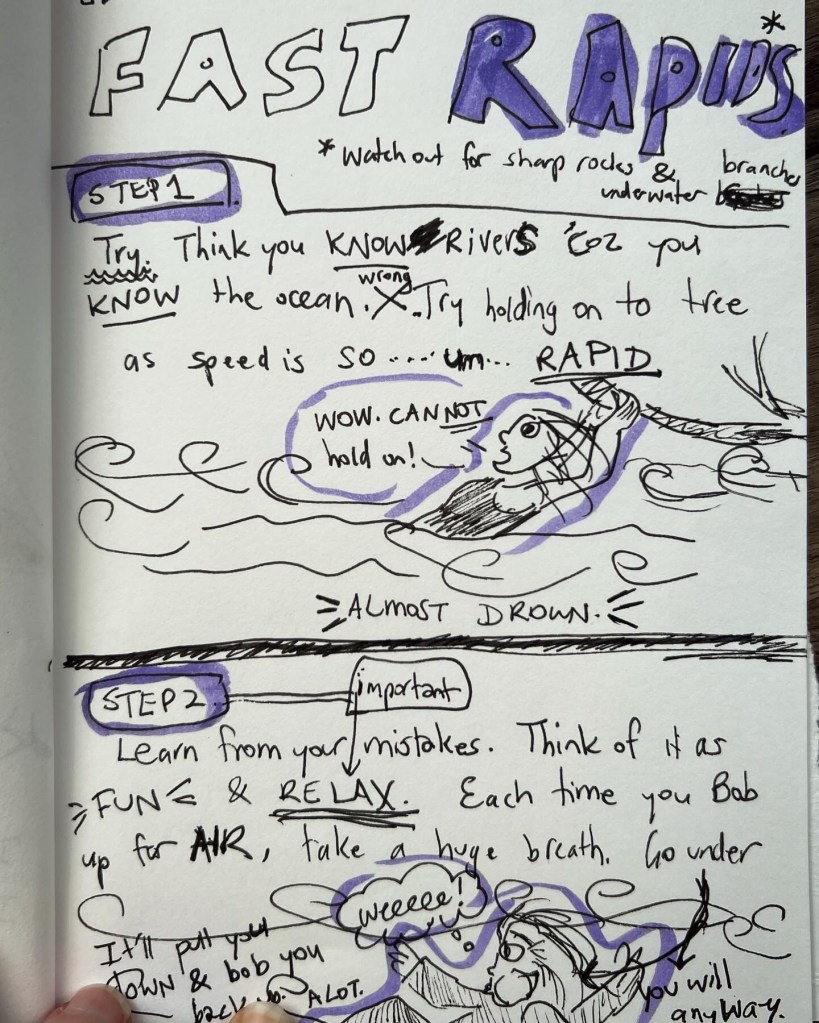 FAST RAPIDS*
* Watch out for sharp rocks &
underwater branches
STEP 1
Try. Think you KNOW RIVERS 'Coz you
KNOW the ocean. wrong X. Try holding on to tree
as speed is SO .... um... RAPID
WOW. CANNOT
hold on!
ALMOST DROWN.
STEP 2
important
Learn from your mistakes. Think of it as
FUN & RELAX. Each time you Bob
up for AIR, take a huge breath. Go under
weeeee!
It'll pull you
DOWN & bob you
back up. A LOT.
you will
anyway.